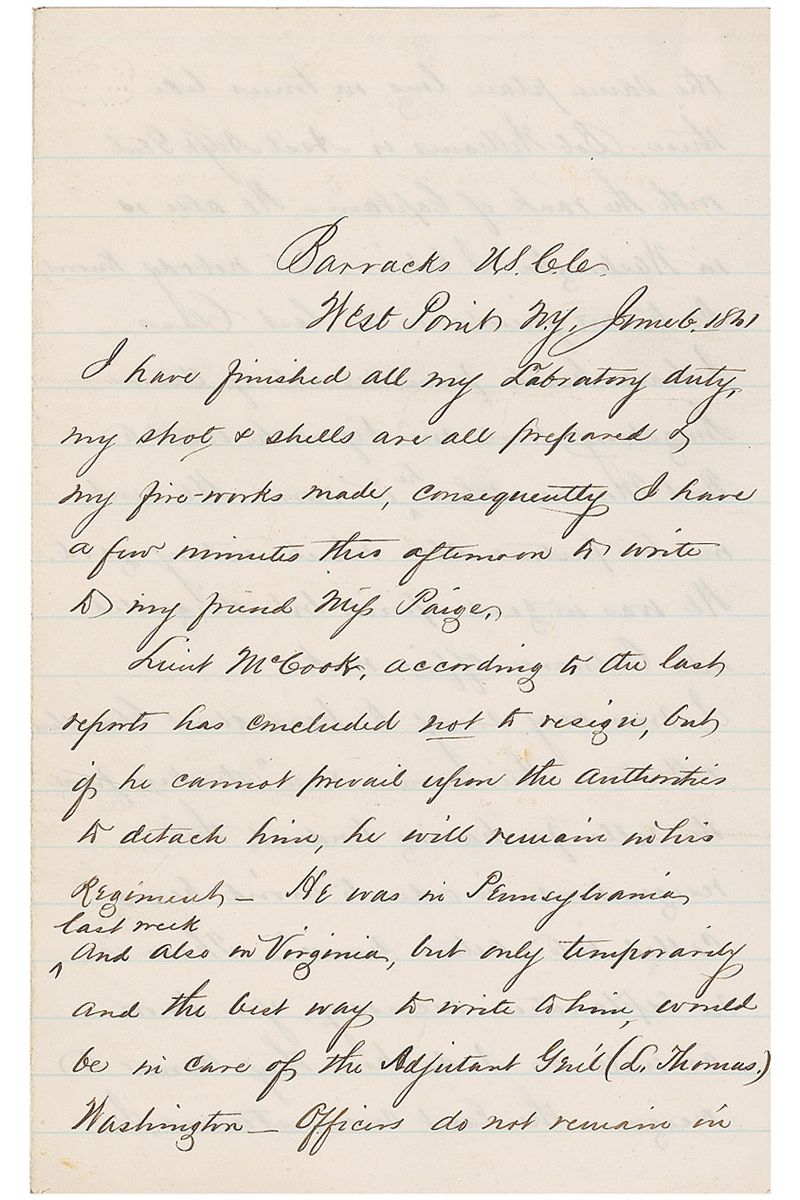 Barracks U.S.C.C.
West Point N.Y. June 6. 1861
I have finished all my Labratory duty,
my shot & shells are all prepared &
my fire-works made, consequently I have
a few minutes this afternoon to write
to my friend Miss Paige.
Lieut McCook, according to the last
reports has concluded not to resign, but
if he cannot prevail upon the authorities
to detach him, he will remain in his
Regiment — He was in Pennsylvania
last week
And also in Virginia, but only temporarily
and the best way to write to him, would
be in care of the Adjutant Gen'l (L. Thomas.)
Washington — Officers do not remain in